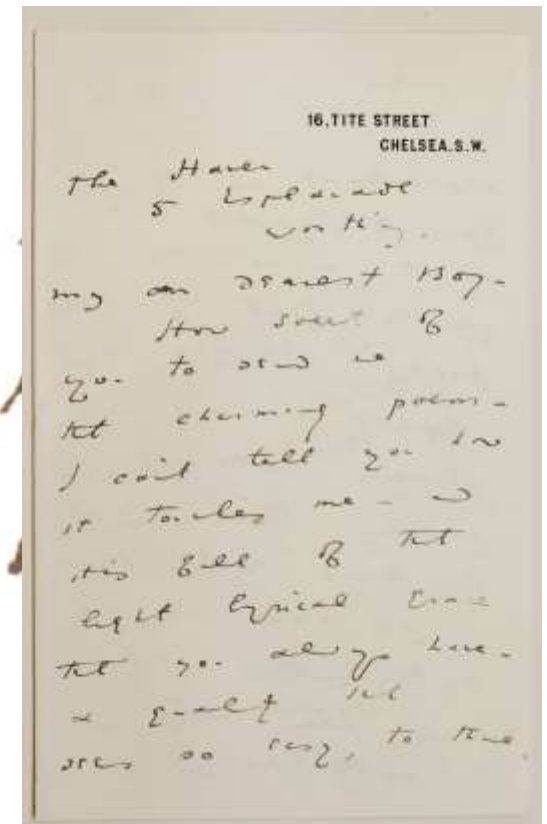 16, TITE STREET
CHELSEA. S.W.
The Haven
5 Esplanade
Worthing.
My own dearest Boy -
How sweet of
you to send me
that charming poem -
I can't tell you how
it touches me - &
it is full of that
light lyrical grace
that you always have -
a quality that
seems so easy, to those